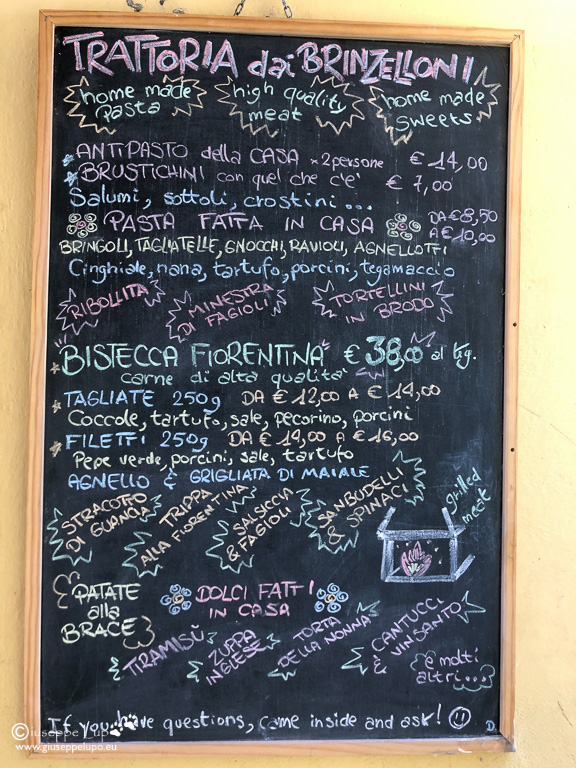 TRATTORIA dai BRINZELLONI
home made pasta
high quality meat
home made sweets
ANTIPASTO della CASA x 2 persone € 14,00
BRUSTICHINI con quel che c'è € 7,00
Salumi, sottoli, crostini ...
PASTA FATTA IN CASA DA € 8,50 A € 10,00
BRINGOLI, TAGLIATELLE, GNOCCHI, RAVIOLI, AGNELLOTTI
Cinghiale, nana, tartufo, porcini, tegamaccio
RIBOLLITA
MINESTRA DI FAGIOLI
TORTELLINI IN BRODO
BISTECCA FIORENTINA € 38,00 al kg.
carne di alta qualità
TAGLIATE 250g DA € 12,00 A € 14,00
Coccole, tartufo, sale, pecorino, porcini
FILETTI 250g DA € 14,00 A € 16,00
Pepe verde, porcini, sale, tartufo
AGNELLO E GRIGLIATA DI MAIALE
STRACOTTO DI GUANCIA
TRIPPA ALLA FIORENTINA
SALSICCIA & FAGIOLI
SANBUDELLI & SPINACI
grilled meat
PATATE alla BRACE
DOLCI FATTI IN CASA
TIRAMISÙ
ZUPPA INGLESE
TORTA DELLA NONNA
CANTUCCI & VINSANTO
e molti altri...
If you have questions, came inside and ask!
D.
© iuseppe Lupo
www.giuseppelupo.eu